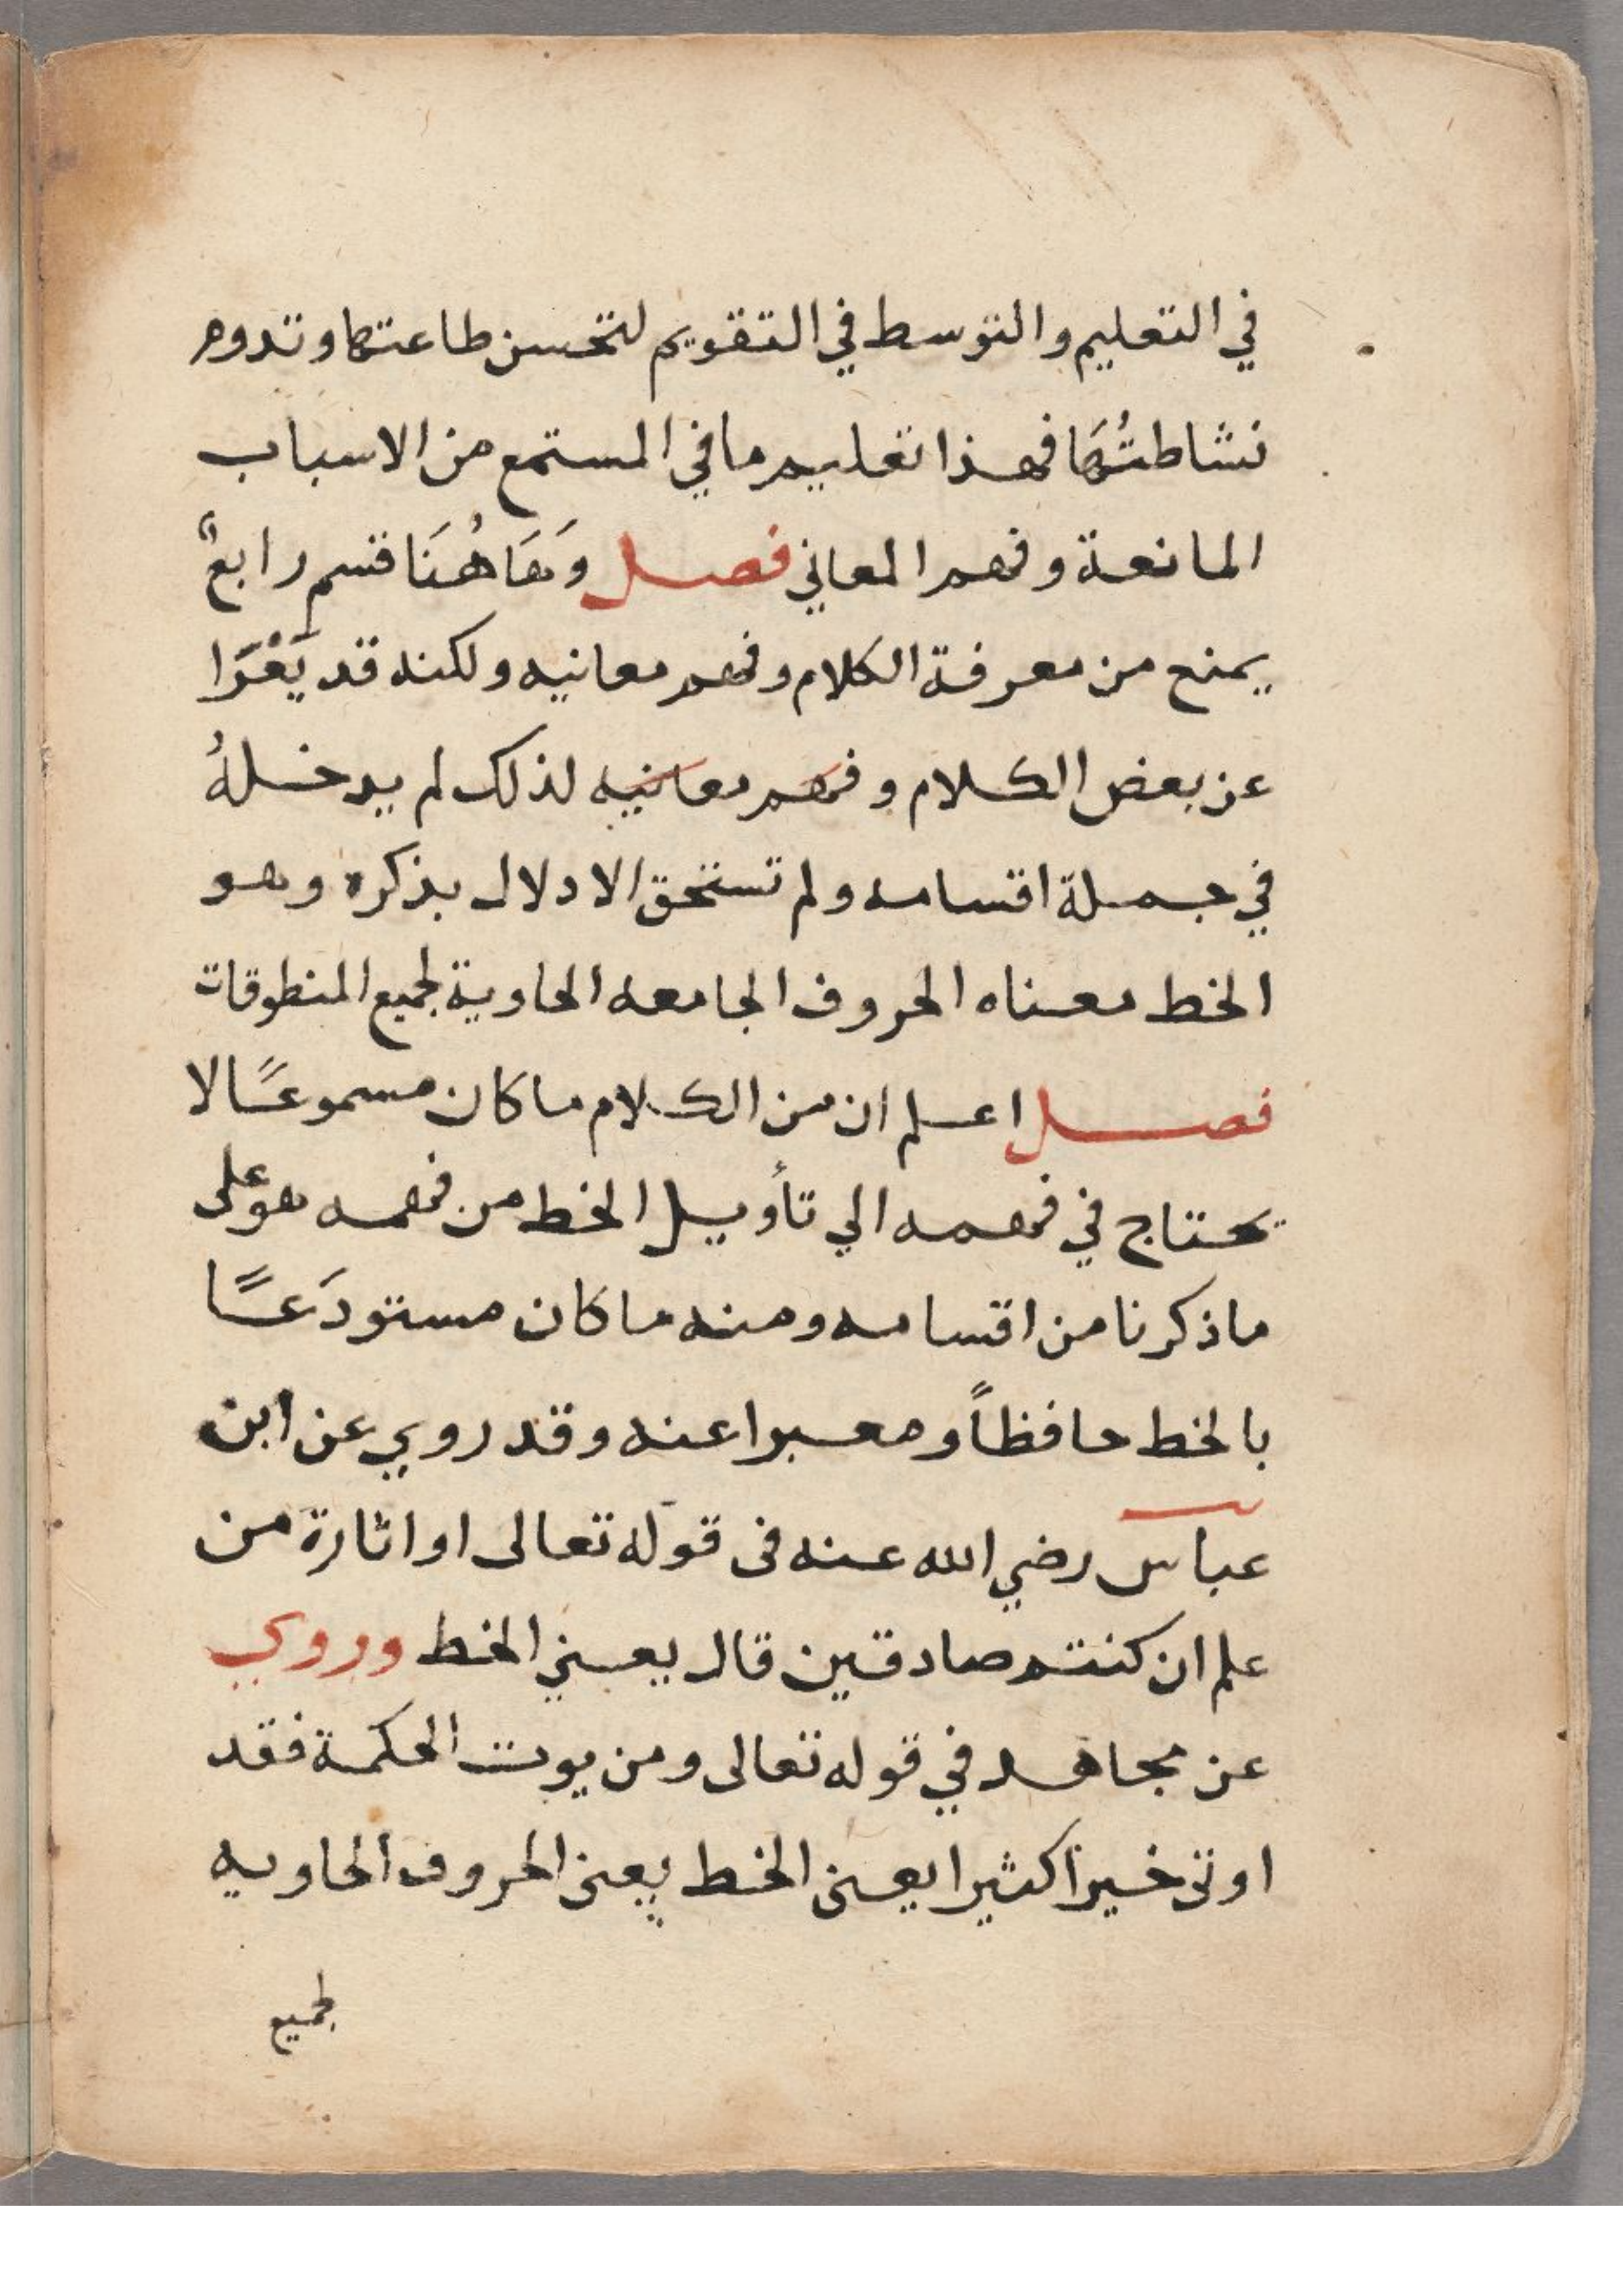 في التعليم والتوسط في التقويم لتحسن طاعتها وتدوم
نشاطتُهَا فهذا تعليم ما في المستمع من الاسباب
المانعة وفهم المعاني فصل وَهَاهُنَا قسم رابعٌ
يمنع من معرفة الكلام وفهم معانيه ولكنه قد يَعْرَا
عن بعض الكلام وفهم معانيه لذلك لم يدخلهُ
في جملة اقسامه ولم تستحق الادلال بذكره وهو
الخط معناه الحروف الجامعه الحاوية لجميع المنطوقات
فصل اعلم ان من الكلام ما كان مسموعًا لا
تحتاج في فهمه الي تأويل الخط من فهمه هو على
ما ذكرنا من اقسامه ومنه ما كان مستودَعًا
بالخط حافظاً ومعبرا عنه وقد روي عن ابن
عباس رضي الله عنه فى قوله تعالى او اثارة من
علم ان كنتم صادقين قال يعني الخط وروي
عن مجاهد في قوله تعالى ومن يوت الحكمة فقد
اوتى خيراً كثيرا يعنى الخط يعنى الحروف الحاويه
لجميع